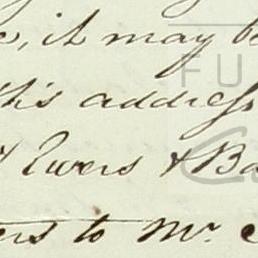 , it may be
this address
Ewers & Ba
ers to Mr.